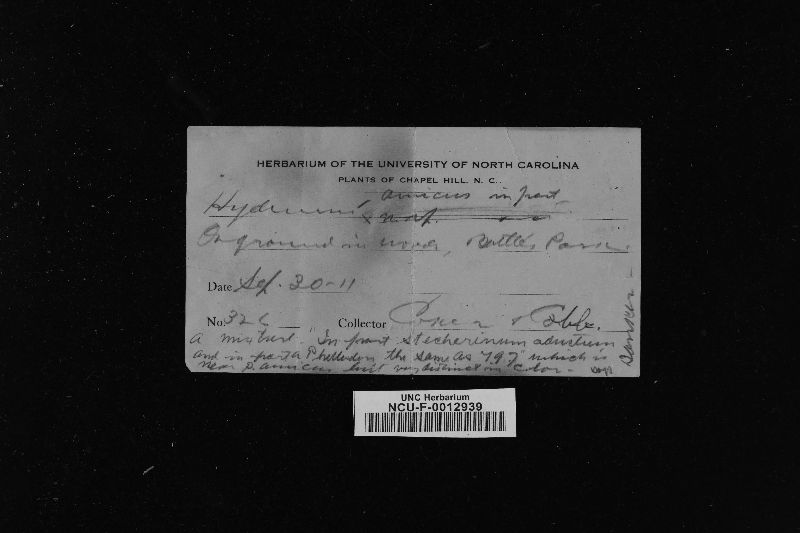 HERBARIUM OF THE UNIVERSITY OF NORTH CAROLINA
PLANTS OF CHAPEL HILL, N. C.
Hydnum amicus in part
On ground in woods, Battle's Park.
Date Sep. 30-11
No. 32 Collector Coker & Coble.
A mixture. In part Steccherinum adustum
and in part a Phellodon the same as 797 which is
near P. amicus but very distinct in color -
Banker -
UNC Herbarium
NCU-F-0012939